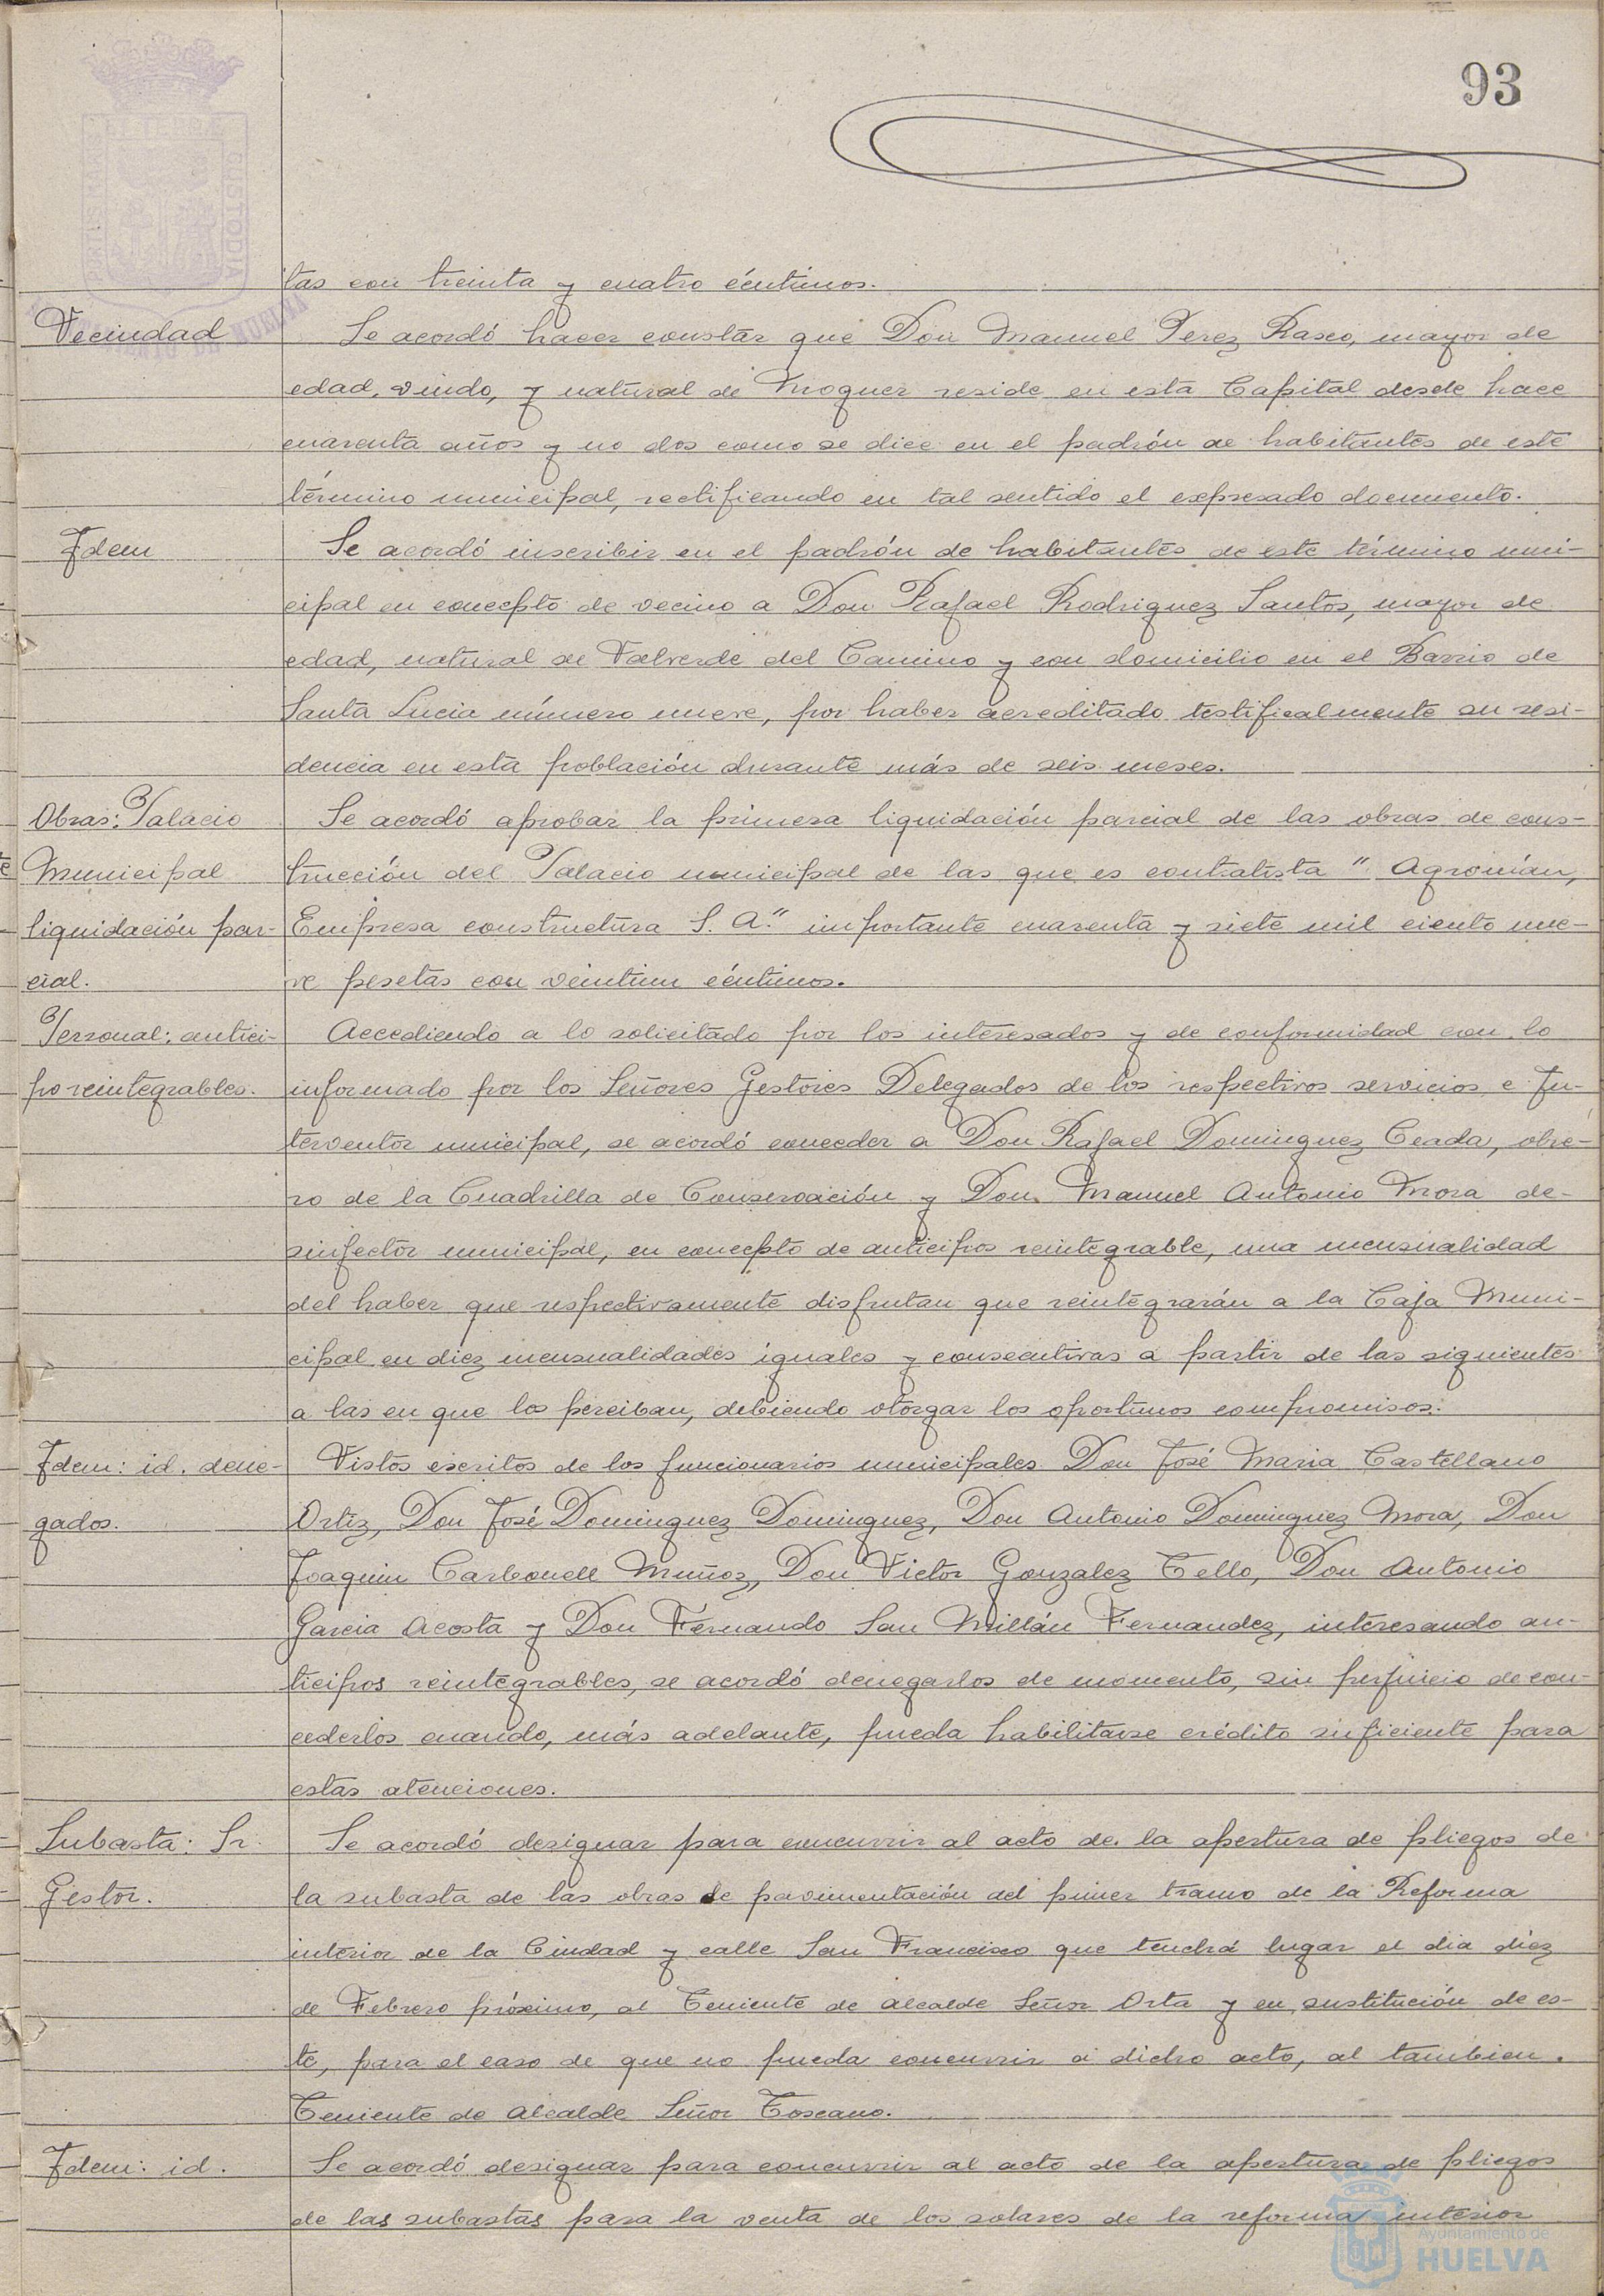 93
tas con treinta y cuatro céntimos.
Vecindad
Se acordó hacer constar que Don Manuel Perez Rasco, mayor de
edad, viudo, y natural de Moguer reside en esta Capital desde hace
cuarenta años y no dos como se dice en el padrón de habitantes de este
término municipal, rectificando en tal sentido el expresado documento.
Idem
Se acordó inscribir en el padrón de habitantes de este término muni-
cipal en concepto de vecino a Don Rafael Rodriguez Santos, mayor de
edad, natural de Valverde del Camino y con domicilio en el Barrio de
Santa Lucia número nueve, por haber acreditado testificalmente su resi-
dencia en esta población durante más de seis meses.
Obras: Palacio
Municipal
liquidación par-
cial.
Se acordó aprobar la primera liquidación parcial de las obras de cons-
trucción del Palacio municipal de las que es contratista "Agromán,
Empresa constructura S. A." importante cuarenta y siete mil ciento nue-
ve pesetas con veintiun céntimos.
Personal: antici-
po reintegrables.
Accediendo a lo solicitado por los interesados y de conformidad con lo
informado por los Señores Gestores Delegados de los respectivos servicios e In-
terventor municipal, se acordó conceder a Don Rafael Dominguez Ceada, obre-
ro de la Cuadrilla de Conservación y Don Manuel Antonio Mora de-
sinfector municipal, en concepto de anticipos reintegrable, una mensualidad
del haber que respectivamente disfrutan que reintegrarán a la Caja Muni-
cipal en diez mensualidades iguales y consecutivas a partir de las siguientes
a las en que los perciban, debiendo otorgar los oportunos compromisos.
Idem: id. dene-
gados.
Vistos escritos de los funcionarios municipales Don José Maria Castellano
Ortiz, Don José Dominguez Dominguez, Don Antonio Dominguez Mora, Don
Joaquin Carbonell Muñoz, Don Victor Gonzalez Tello, Don Antonio
Garcia Acosta y Don Fernando San Millán Fernandez, interesando an-
ticipos reintegrables, se acordó denegarlos de momento, sin perjuicio de con-
cederlos cuando, más adelante, pueda habilitarse crédito suficiente para
estas atenciones.
Subasta: Sr.
Gestor.
Se acordó designar para concurrir al acto de la apertura de pliegos de
la subasta de las obras de pavimentación del primer tramo de la Reforma
interior de la Ciudad y calle San Francisco que tendrá lugar el dia diez
de Febrero próximo, al Teniente de Alcalde Señor Orta y en sustitución de es-
te, para el caso de que no pueda concurrir a dicho acto, al tambien
Teniente de Alcalde Señor Toscano.
Idem: id.
Se acordó designar para concurrir al acto de la apertura de pliegos
de las subastas para la venta de los solares de la reforma interior
Ayuntamiento de
HUELVA